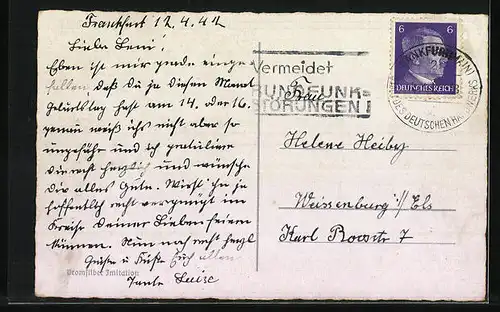 Frankfurt 12.4.42
Liebe Leni!
Eben ist mir grade einge-
fallen daß du ja diesen Monat
Geburtstag hast am 14. oder 16.
genau weiß ichs nicht aber so
ungefähr und ich gratuliere
dir recht herzlich und wünsche
dir alles Gute. Wirst ihn ja
hoffentlich recht vergnügt im
Kreise Deiner Lieben feiern
können. Nun noch recht herzl
Grüße u Küße Euch allen
Tante Luise
Bromsilber Imitation
Vermeidet
RUNDFUNK-
STÖRUNGEN!
6 6
DEUTSCHES REICH
FRANKFURT (MAIN)
DES DEUTSCHEN HANDWERKS
Helene Heiby
Weissenburg i/ Els
Karl 7